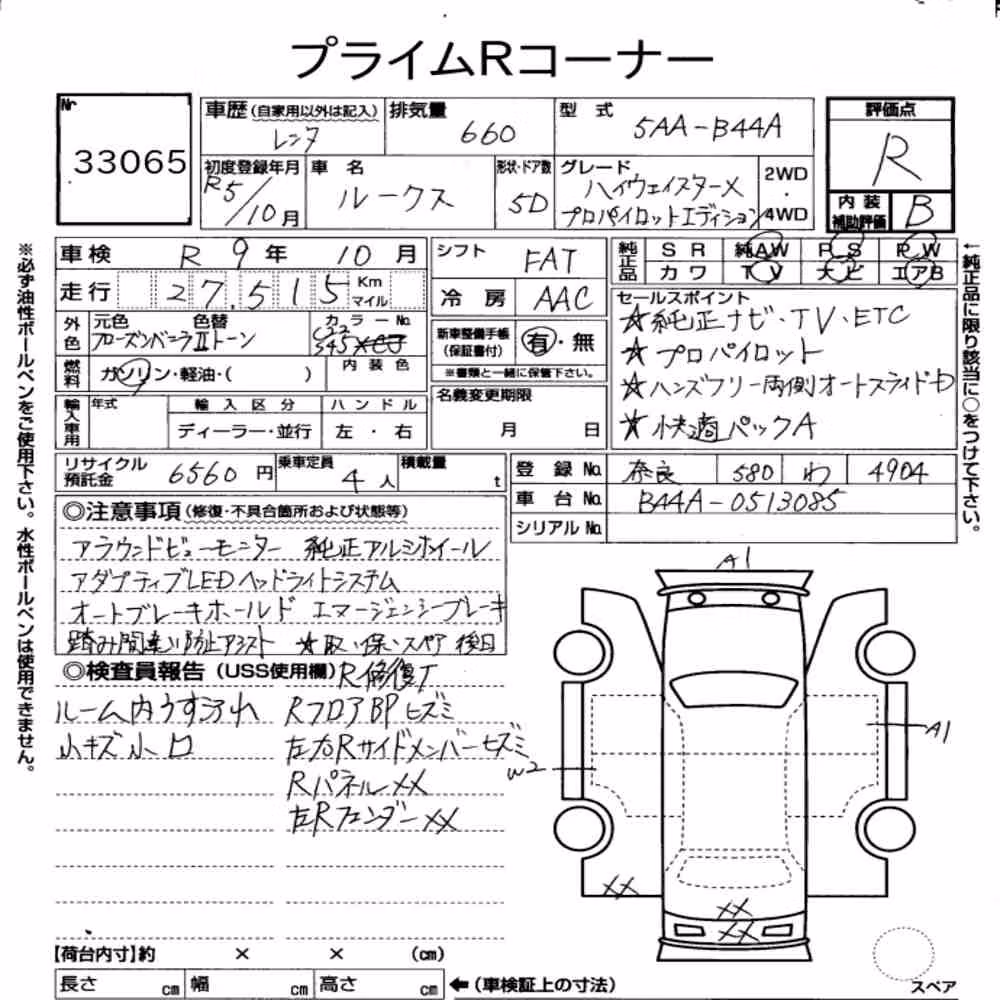 プライムRコーナー
Nr
33065
車歴 (自家用以外は記入)
レンタ
排気量
660
型 式
5AA-B44A
評価点
R
初度登録年月
R5/10月
車 名
ルークス
形状・ドア数
5D
グレード
ハイウェイスターX
プロパイロットエディション
2WD
・
4WD
内 装
補助評価
B
車検 R 9 年 10 月
走行 27,515 Km
マイル
外色
元色 色替
フローズンバニラⅡトーン
カラーNo.
燃料
ガソリン・軽油・( )
内 装 色
輸入車用
年式
輸 入 区 分
ディーラー・並行
ハ ン ド ル
左 ・ 右
シフト FAT
冷 房 AAC
新車整備手帳
(保証書付)
有・無
※書類と一緒に保管下さい。
名義変更期限
月 日
純正品
S R 純AW P S P W
カ ワ T V ナ ビ エアB
セールスポイント
☆純正ナビ・TV・ETC
☆プロパイロット
☆ハンズフリー両側オートスライドD
☆快適パックA
リサイクル
預託金
6560 円
乗車定員
4 人
積載量
t
登 録 No. 奈良 580 わ 4904
車 台 No. B44A-0513085
シリアルNo.
◎注意事項 (修復・不具合箇所および状態等)
アラウンドビューモニター 純正アルミホイール
アダプティブLEDヘッドライトシステム
オートブレーキホールド エマージェンシーブレーキ
踏み間違い防止アシスト ☆取・保・スペア 後日
◎検査員報告 (USS使用欄)
R修復了
ルーム内うす汚れ
RフロアBPヒズミ
小キズ小凹
左右Rサイドメンバーヒズミ
RパネルXX
左RフェンダーXX
A1
A1
W2
XX
XX
XX
【荷台内寸】約 × × (cm)
長さ cm 幅 cm 高さ cm
←(車検証上の寸法)
スペア
※必ず油性ボールペンをご使用下さい。水性ボールペンは使用できません。
←純正品に限り該当に○をつけて下さい。